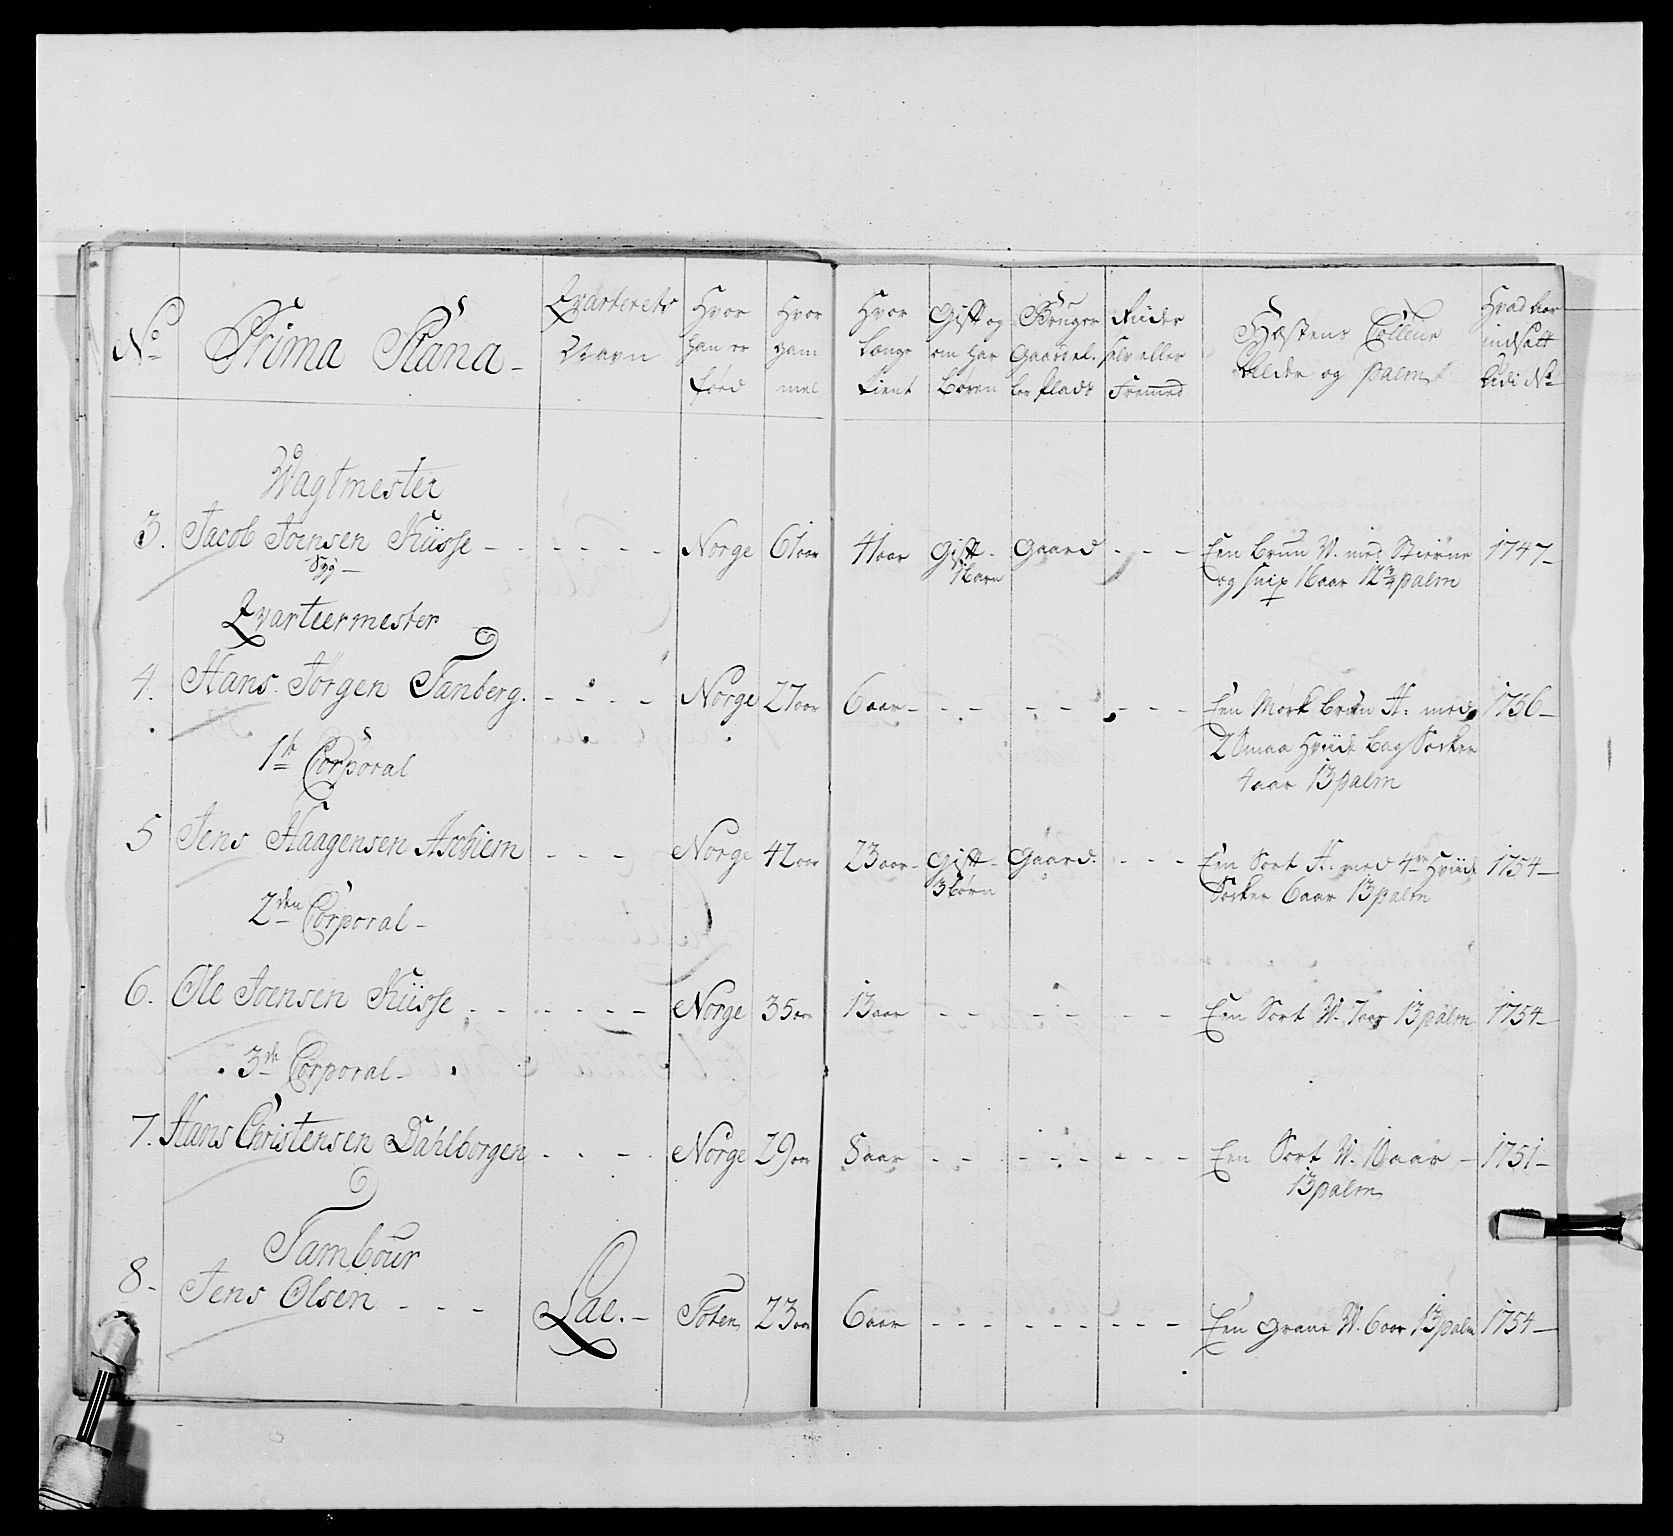 No Prima Plana - Qvarterets Navn Hvor han er fød Hvor gam mel Hvor Længe tient Gift og om har Børn Bruger Gaard el. ler Plads Riider selv eller Fremmed Hæstens Colleur Alder og palm Hvad Aar indsatt udi No
Wagtmester
3. Jacob Joensen Kiisse - - - - - - Norge 61 aar 41 aar Gift - Gaard - - - Een brun V. med Stierne 1747 -
Syg - 1 barn og snip 16 aar 12 3/4 palm
Qvarteermester
4. Hans Jørgen Tanberg. - - - - Norge 27 aar 6 aar - - - - - - - - Een Mørk brun H: med 1756 -
2 Smaa hviide bag Sokker
4 aar 13 palm
1te Corporal
5 Jens Haagensen Aschiem - - - Norge 42 aar 23 aar - Gift - Gaard - - - Een Sort H: med 4re hviide 1754 -
3 børn Sokker 6 aar 13 palm
2den Corporal -
6. Ole Joensen Kiisse - - - - - - Norge 35 aar 13 aar - - - - - - Een Sort V. 7 aar 13 palm 1754 -
3de Corporal -
7. Hans Christensen Dahlborgen - - - - Norge 29 aar 8 aar - - - - - - - - Een Sort V. 10 aar - 1751 -
13 palm
Tambour
8 - Jens Olsen - - - Lae. - Toten 23 aar 6 aar - - - - - - - - Een graae V. 6 aar 13 palm 1754 -